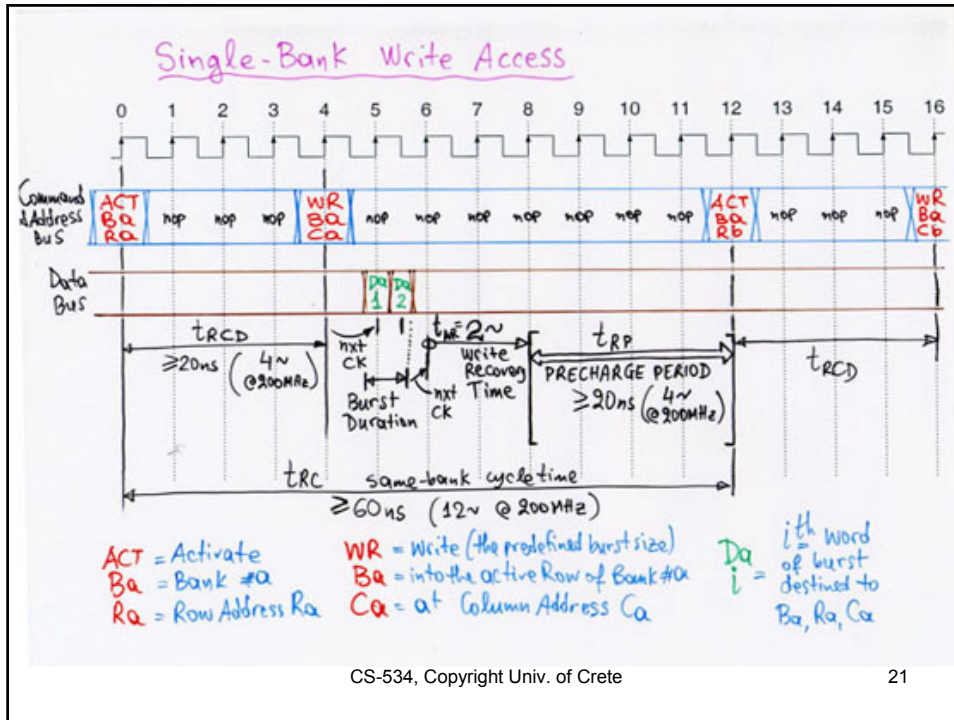 Single-Bank Write Access
0 1 2 3 4 5 6 7 8 9 10 11 12 13 14 15 16
Command
&Address
Bus
ACT
Ba
Ra
nop nop nop
WR
Ba
Ca
nop nop nop nop nop nop nop
ACT
Ba
Rb
nop nop nop
WR
Ba
Cb
Data
Bus
Da
1
Da
2
tRCD
≥20ns (4~ @200MHz)
nxt
CK
Burst
Duration
nxt
CK
tWR=2~
Write
Recovery
Time
tRP
PRECHARGE PERIOD
≥20ns (4~ @200MHz)
tRCD
tRC same-bank cycle time
≥60ns (12~ @ 200MHz)
ACT = Activate
Ba = Bank #a
Ra = Row Address Ra
WR = Write (the predefined burst size)
Ba = into the active Row of Bank #a
Ca = at Column Address Ca
Da
i = ith word
of burst
destined to
Ba, Ra, Ca
CS-534, Copyright Univ. of Crete 21